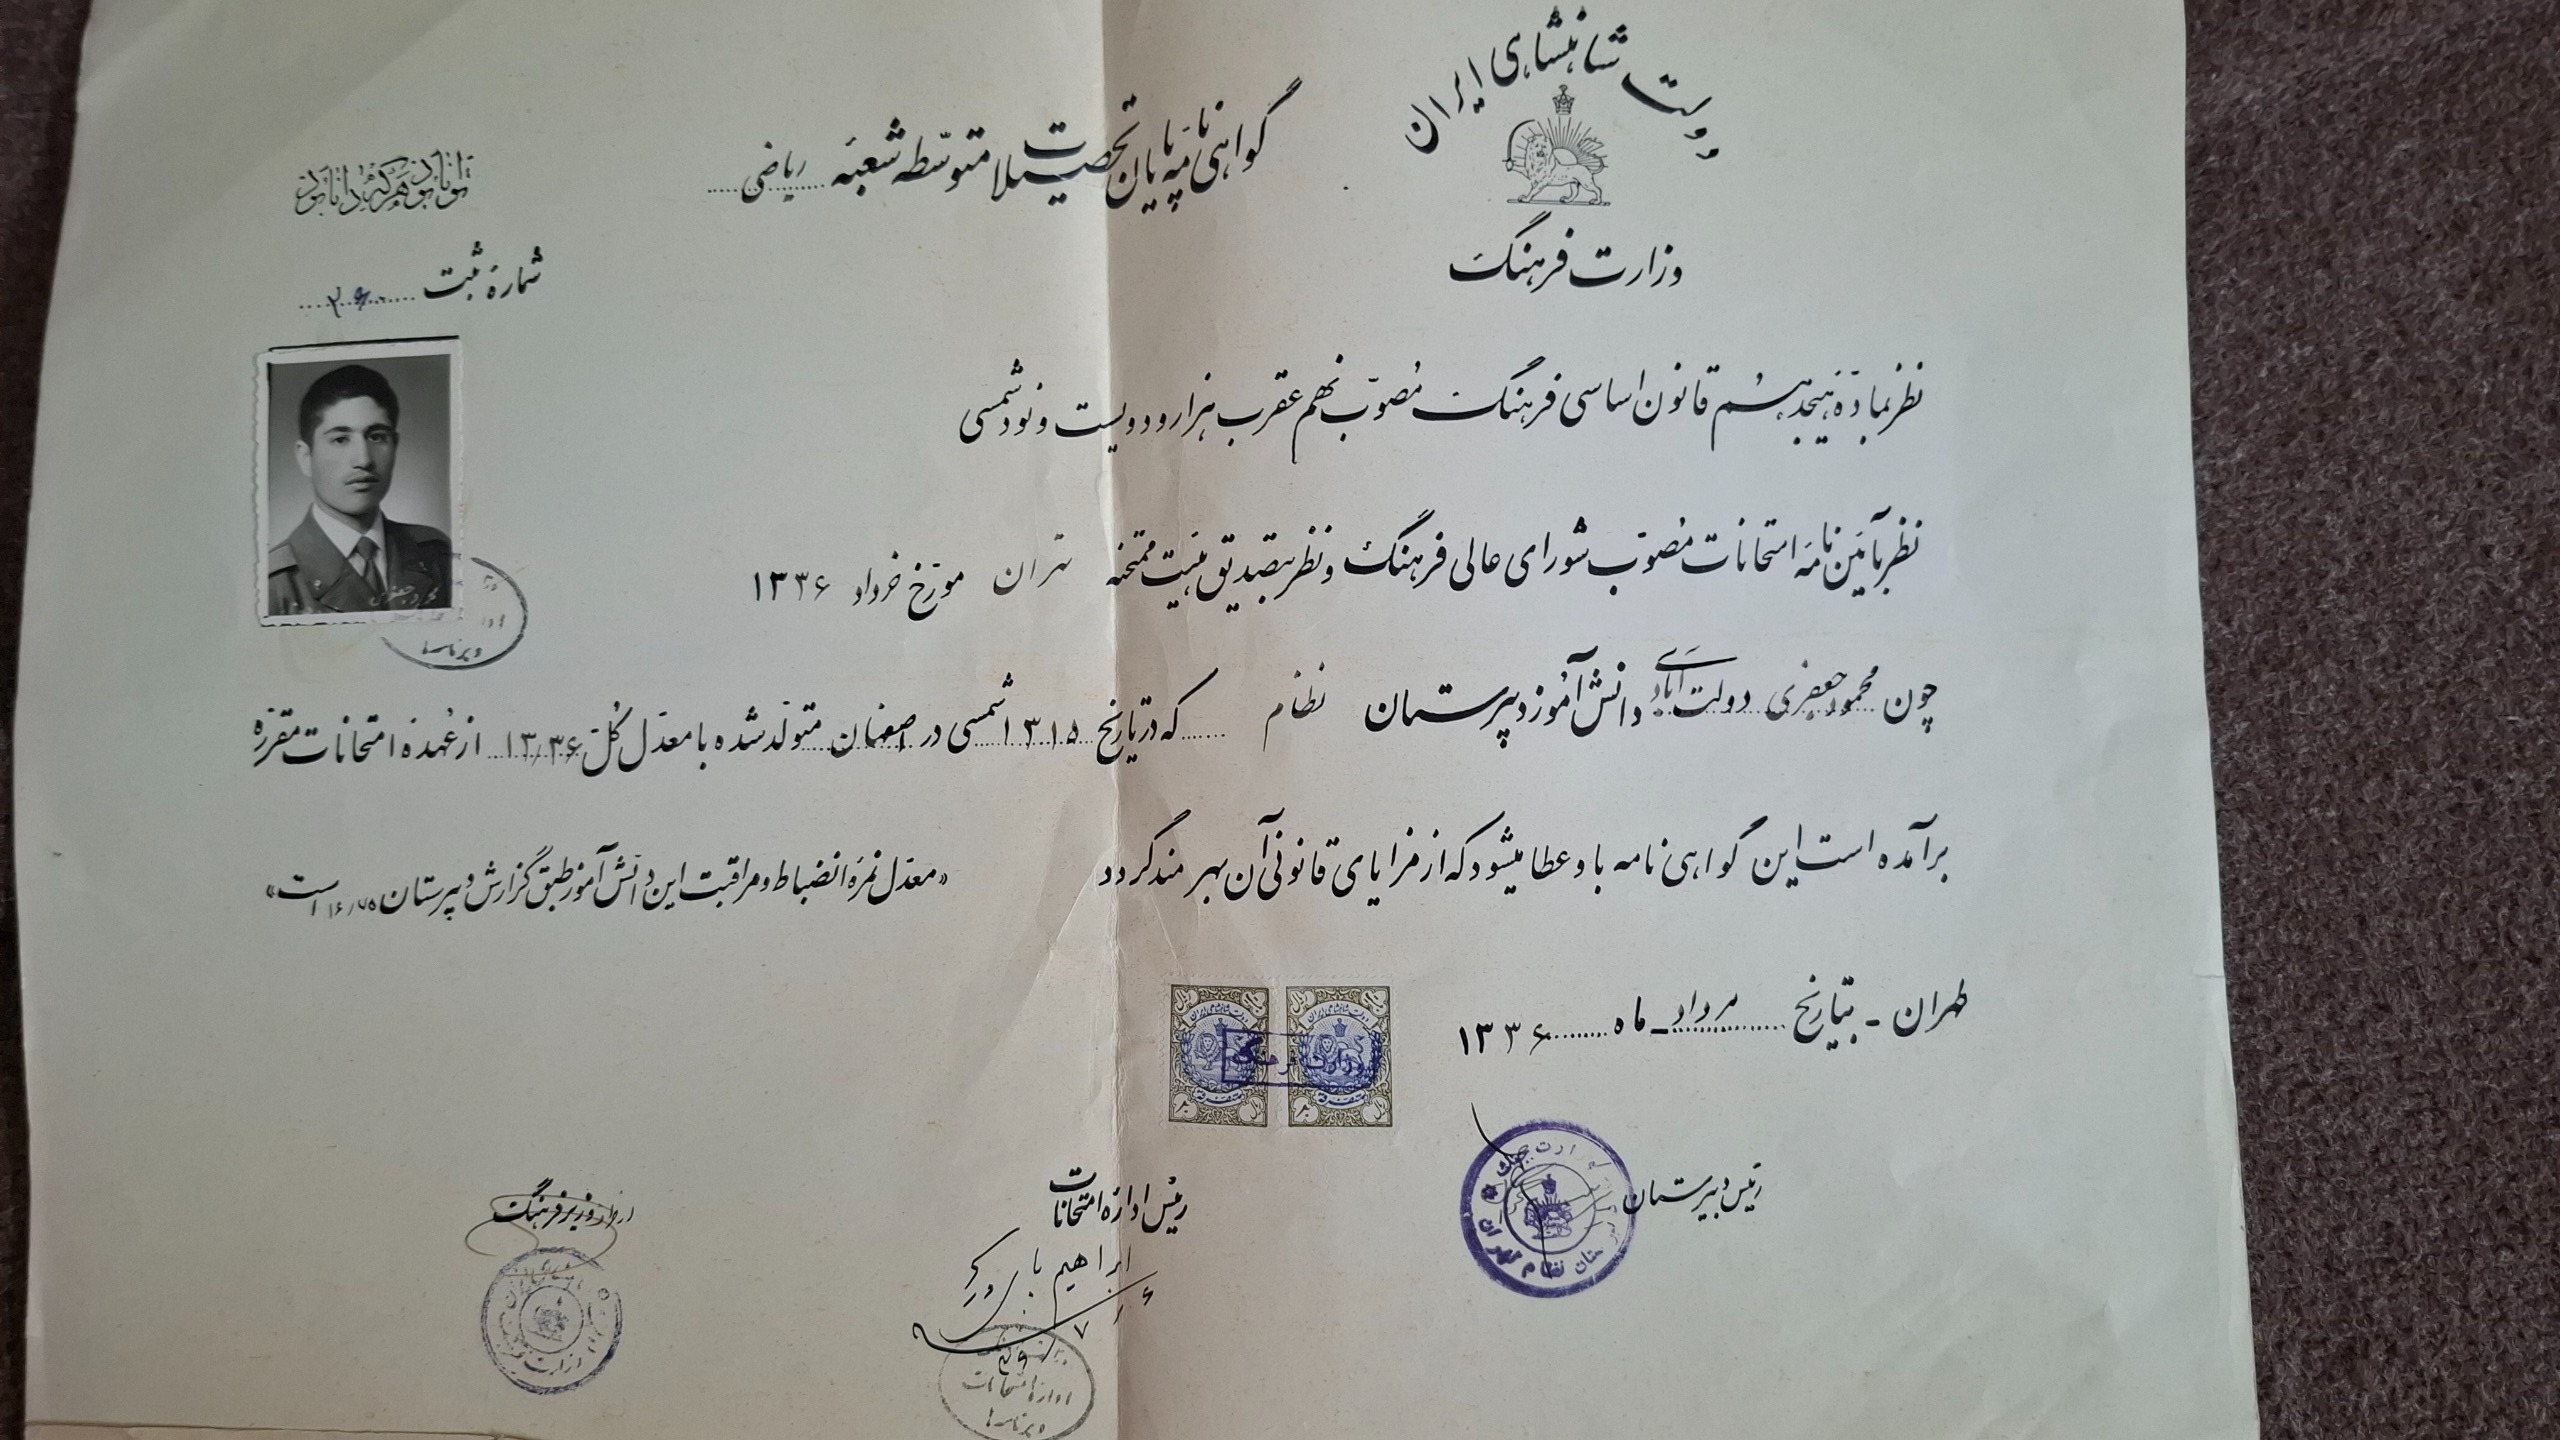 دولت شاهنشاهی ایران
وزارت فرهنگ
گواهی نامهٔ پایان تحصیلات متوسّطه شعبهٔ ریاضی
توانا بود هر که دانا بود
شمارهٔ ثبت ۲۶۰
نظر بمادّهٔ هیجدهم قانون اساسی فرهنگ مُصوّب نهم عقرب هزار و دویست و نود شمسی
نظر بآئین نامهٔ امتحانات مُصوّب شورای عالی فرهنگ و نظر بتصدیق هیئت ممتحنه تهران مورّخ خرداد ۱۳۳۶
چون محمود جعفری دولت آبادی دانش آموز دبیرستان نظام که در تاریخ ۱۳۱۵ شمسی در اصفهان متولّد شده با معدّل کُلّ ۱۳/۳۶ از عُهدهٔ امتحانات مقرّره
برآمده است این گواهی نامه باو عطا میشود که از مزایای قانونی آن بهرمند گردد
«معدّل نمرهٔ انضباط و مراقبت این دانش آموز طبق گزارش دبیرستان ۱۶/۷۵ است»
طهران - بتاریخ مرداد ماه ۱۳۳۶
وزارت فرهنگ
دولت شاهنشاهی ایران
متفرقه
رئیس دبیرستان
دبیرستان نظام تهران
رئیس ادارهٔ امتحانات
ابراهیم با
اداره امتحانات
دبیرخانه
از طرف وزیر فرهنگ